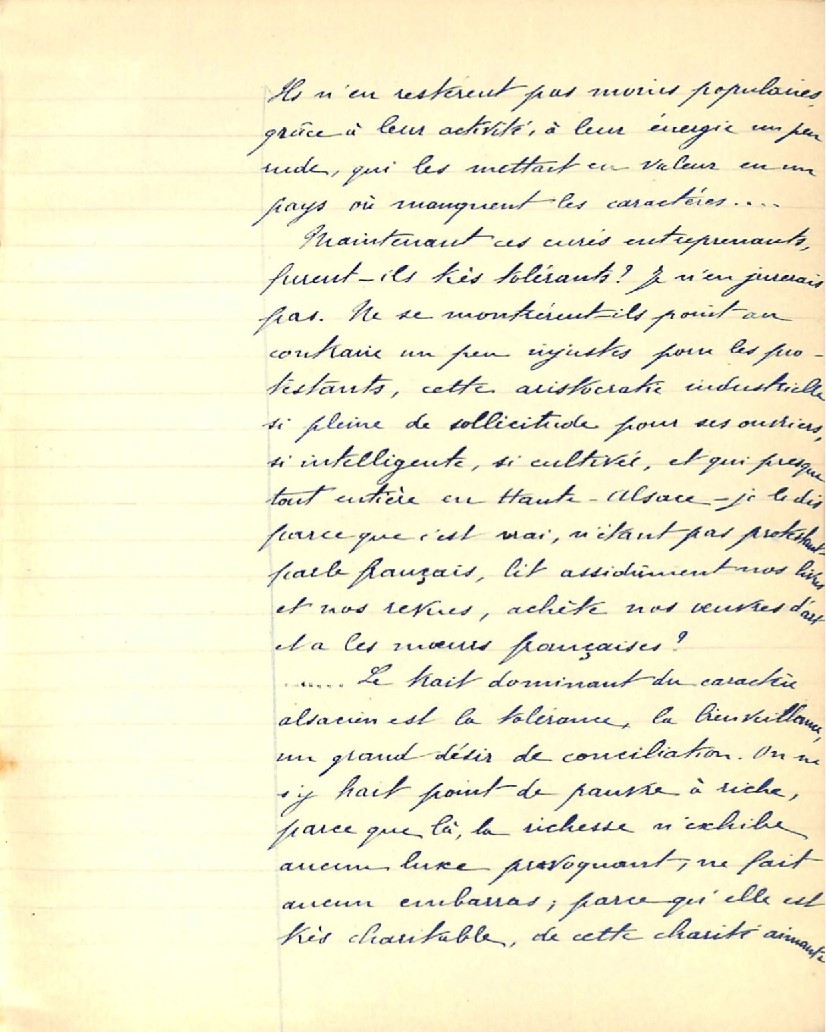 Ils n'en restèrent pas moins populaires,
grâce à leur activité, à leur énergie un peu
rude, qui les mettait en valeur en un
pays où manquent les caractères....
Maintenant ces curés entreprenants,
furent-ils très tolérants? Je n'en jurerais
pas. Ne se montrèrent-ils point au
contraire un peu injustes pour les pro-
testants, cette aristocratie industrielle
si pleine de sollicitude pour ses ouvriers,
si intelligente, si cultivée, et qui presque
tout entière en Haute-Alsace - je le dis
parce que c'est vrai, n'étant pas protestant-
parle français, lit assidûment nos livres
et nos revues, achète nos œuvres d'art
et a les mœurs françaises?
...... Le trait dominant du caractère
alsacien est la tolérance, la bienveillance,
un grand désir de conciliation. On ne
s'y hait point de pauvre à riche,
parce que là, la richesse n'exhibe
aucun luxe provoquant, ne fait
aucun embarras; parce qu'elle est
très charitable, de cette charité aimante